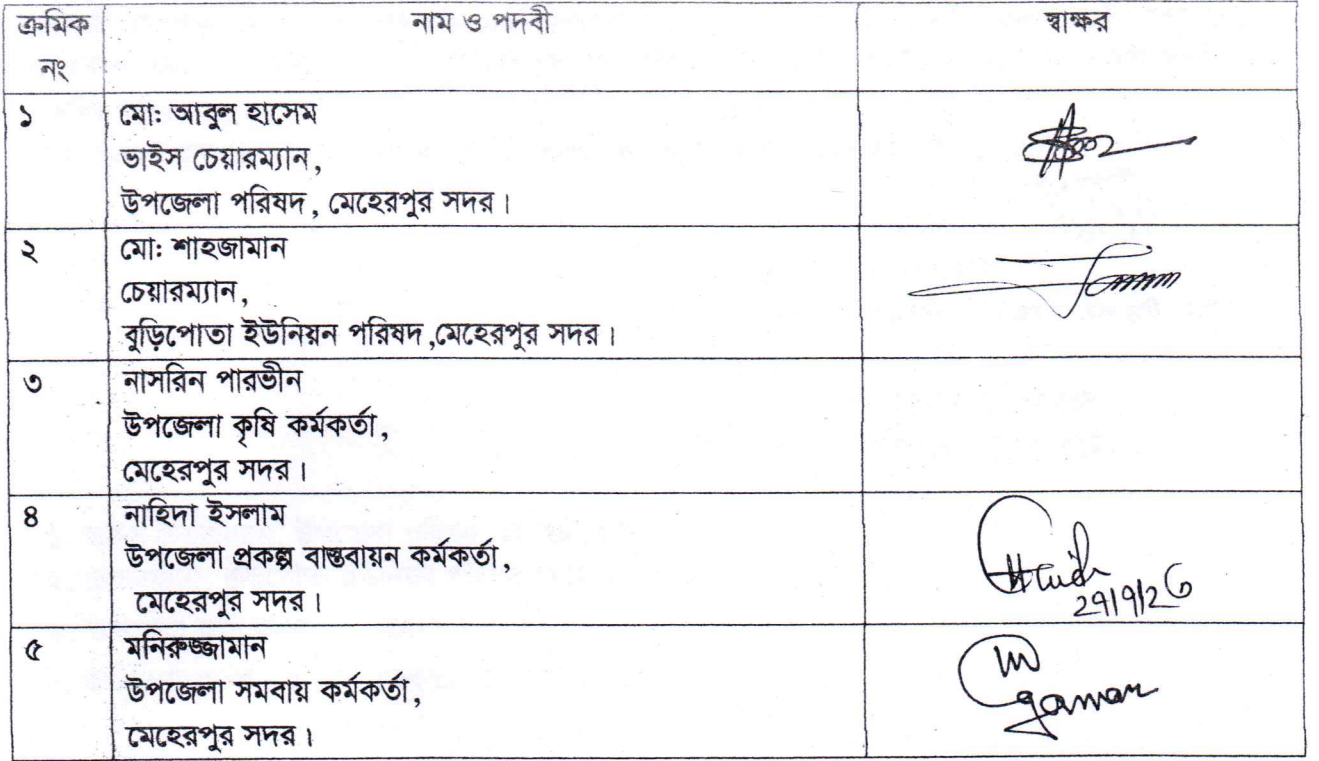 ক্রমিক নং
নাম ও পদবী
স্বাক্ষর
১
মো: আবুল হাসেম
ভাইস চেয়ারম্যান,
উপজেলা পরিষদ, মেহেরপুর সদর।
২
মো: শাহজামান
চেয়ারম্যান,
বুড়িপোতা ইউনিয়ন পরিষদ,মেহেরপুর সদর।
৩
নাসরিন পারভীন
উপজেলা কৃষি কর্মকর্তা,
মেহেরপুর সদর।
৪
নাহিদা ইসলাম
উপজেলা প্রকল্প বাস্তবায়ন কর্মকর্তা,
মেহেরপুর সদর।
৫
মনিরুজ্জামান
উপজেলা সমবায় কর্মকর্তা,
মেহেরপুর সদর।